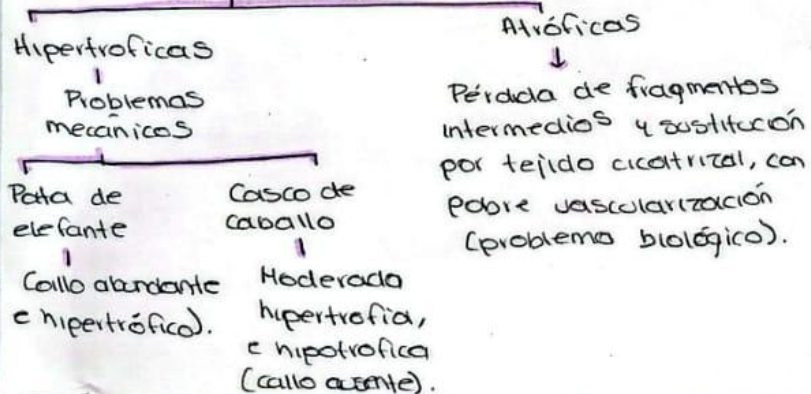 Hipertroficas
Problemas
mecánicos
Pata de
elefante
Callo abundante
e hipertrófico).
Casco de
caballo
Moderada
hipertrofia,
e hipotrofica
(callo ausente).
Atróficas
Pérdida de fragmentos
intermedios y sustitución
por tejido cicatrizal, con
pobre vascularización
(problema biológico).